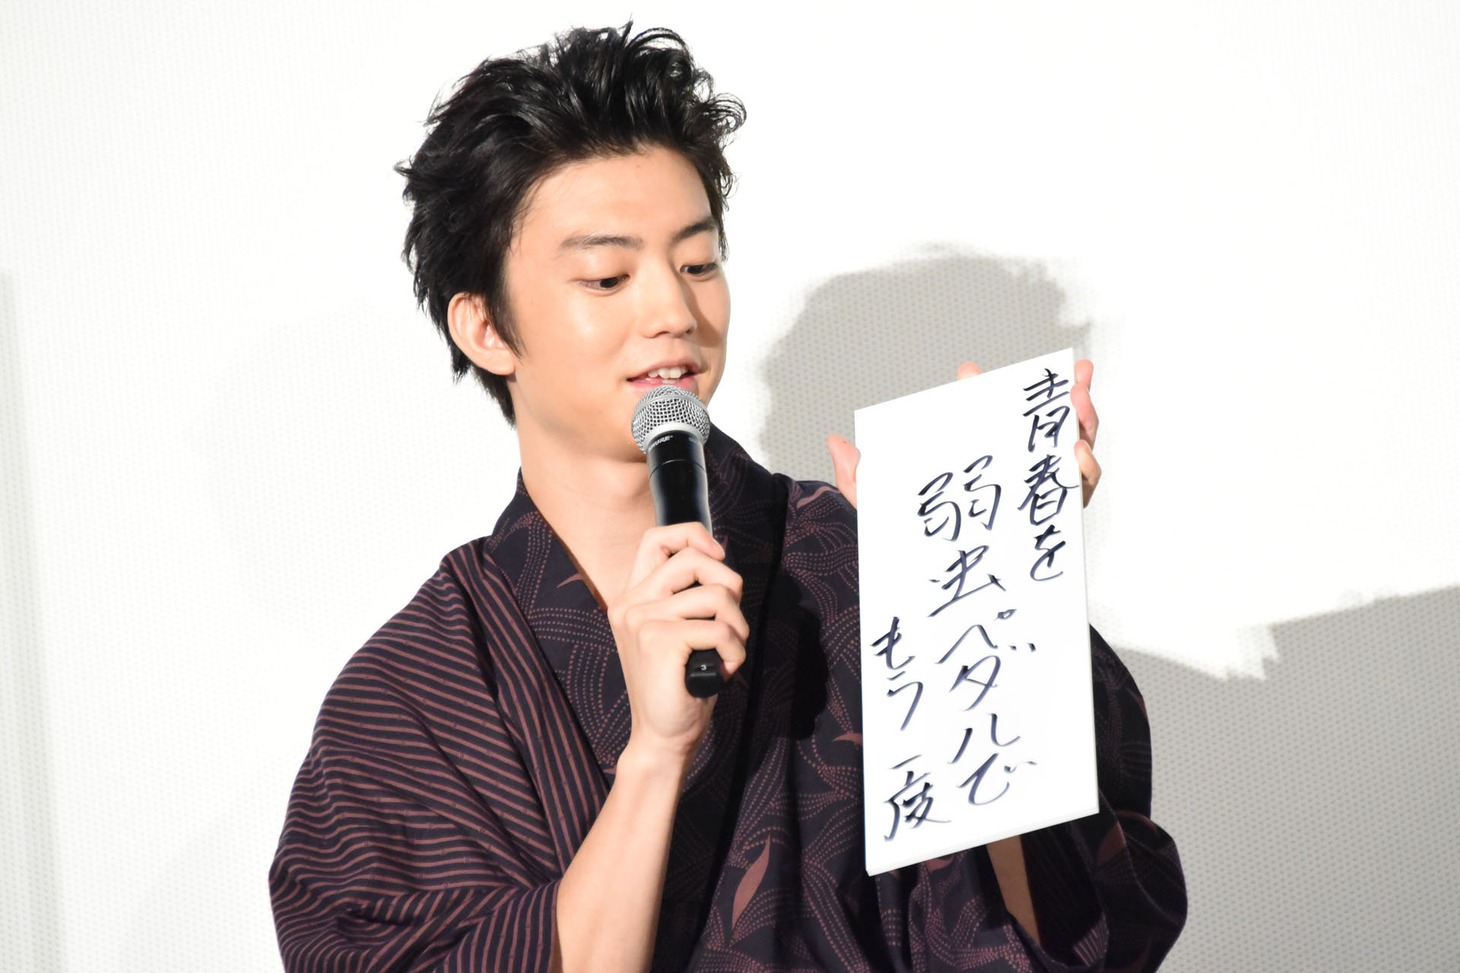 青春を
弱虫ペダルで
もう一度
SHURE
3